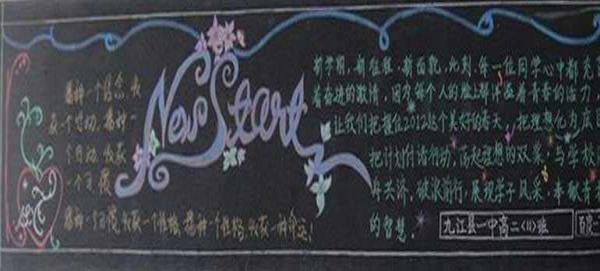 播种一个信念,收
获一个行动,播种一
个行动,收获
一个习惯
播种一个习惯,收获一个性格,播种一个性格,收获一种命运!
New Start
新学期,新征程,新面貌,此刻,每一位同学心中都充
着奋进的激情,因为每个人的脸上都洋溢着青春的活力,
让我们把握住2012这个美好的春天,把理想化为
把计划付诸行动,荡起理想的双桨,与学校
舟共济,破浪前行,展现学子风采,奉献青春
的智慧。
九江县一中高二(11)班